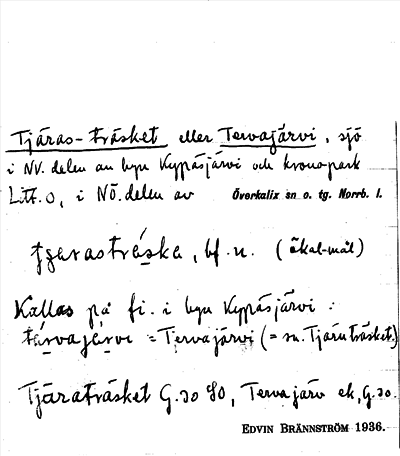 Tjäras-träsket eller Tervajärvi, sjö
i NV. delen av byn Kypäsjärvi och kronopark
Litt. O, i NÖ. delen av Överkalix sn o. tg. Norrb. l.
tjæraströska, bf. n. (ökal-mål)
Kallas på fi. i byn Kypäsjärvi :
tärvajärvi = Tervajärvi (= sv. Tjäruträsket.)
Tjäraträsket G. 30 SO, Tervajärv ek, G. 30.
EDVIN BRÄNNSTRÖM 1936.